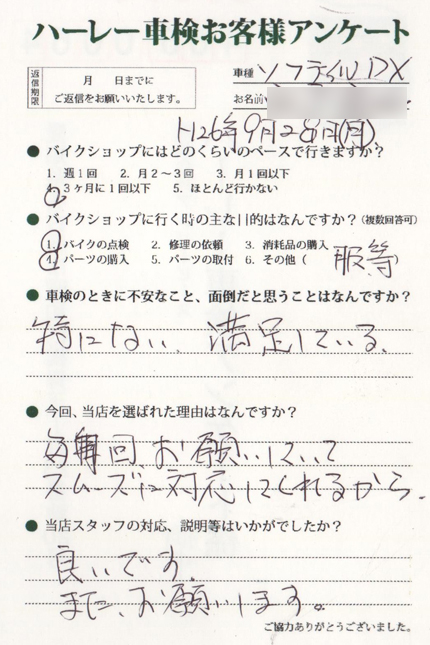 ハーレー車検お客様アンケート
返信期限
月　日までに
ご返信をお願いいたします。
車種 ソフテイルDX
お名前
H26年9月28日(月)
● バイクショップにはどのくらいのペースで行きますか?
1. 週1回　2. 月2〜3回　3. 月1回以下
4. 3ヶ月に1回以下　5. ほとんど行かない
● バイクショップに行く時の主な目的はなんですか?(複数回答可)
1. バイクの点検　2. 修理の依頼　3. 消耗品の購入
4. パーツの購入　5. パーツの取付　6. その他( 服等 )
● 車検のときに不安なこと、面倒だと思うことはなんですか?
特にない、満足している。
● 今回、当店を選ばれた理由はなんですか?
毎回お願いしていて
スムーズに対応してくれるから。
● 当店スタッフの対応、説明等はいかがでしたか?
良いです。
また、お願いします。
ご協力ありがとうございました。